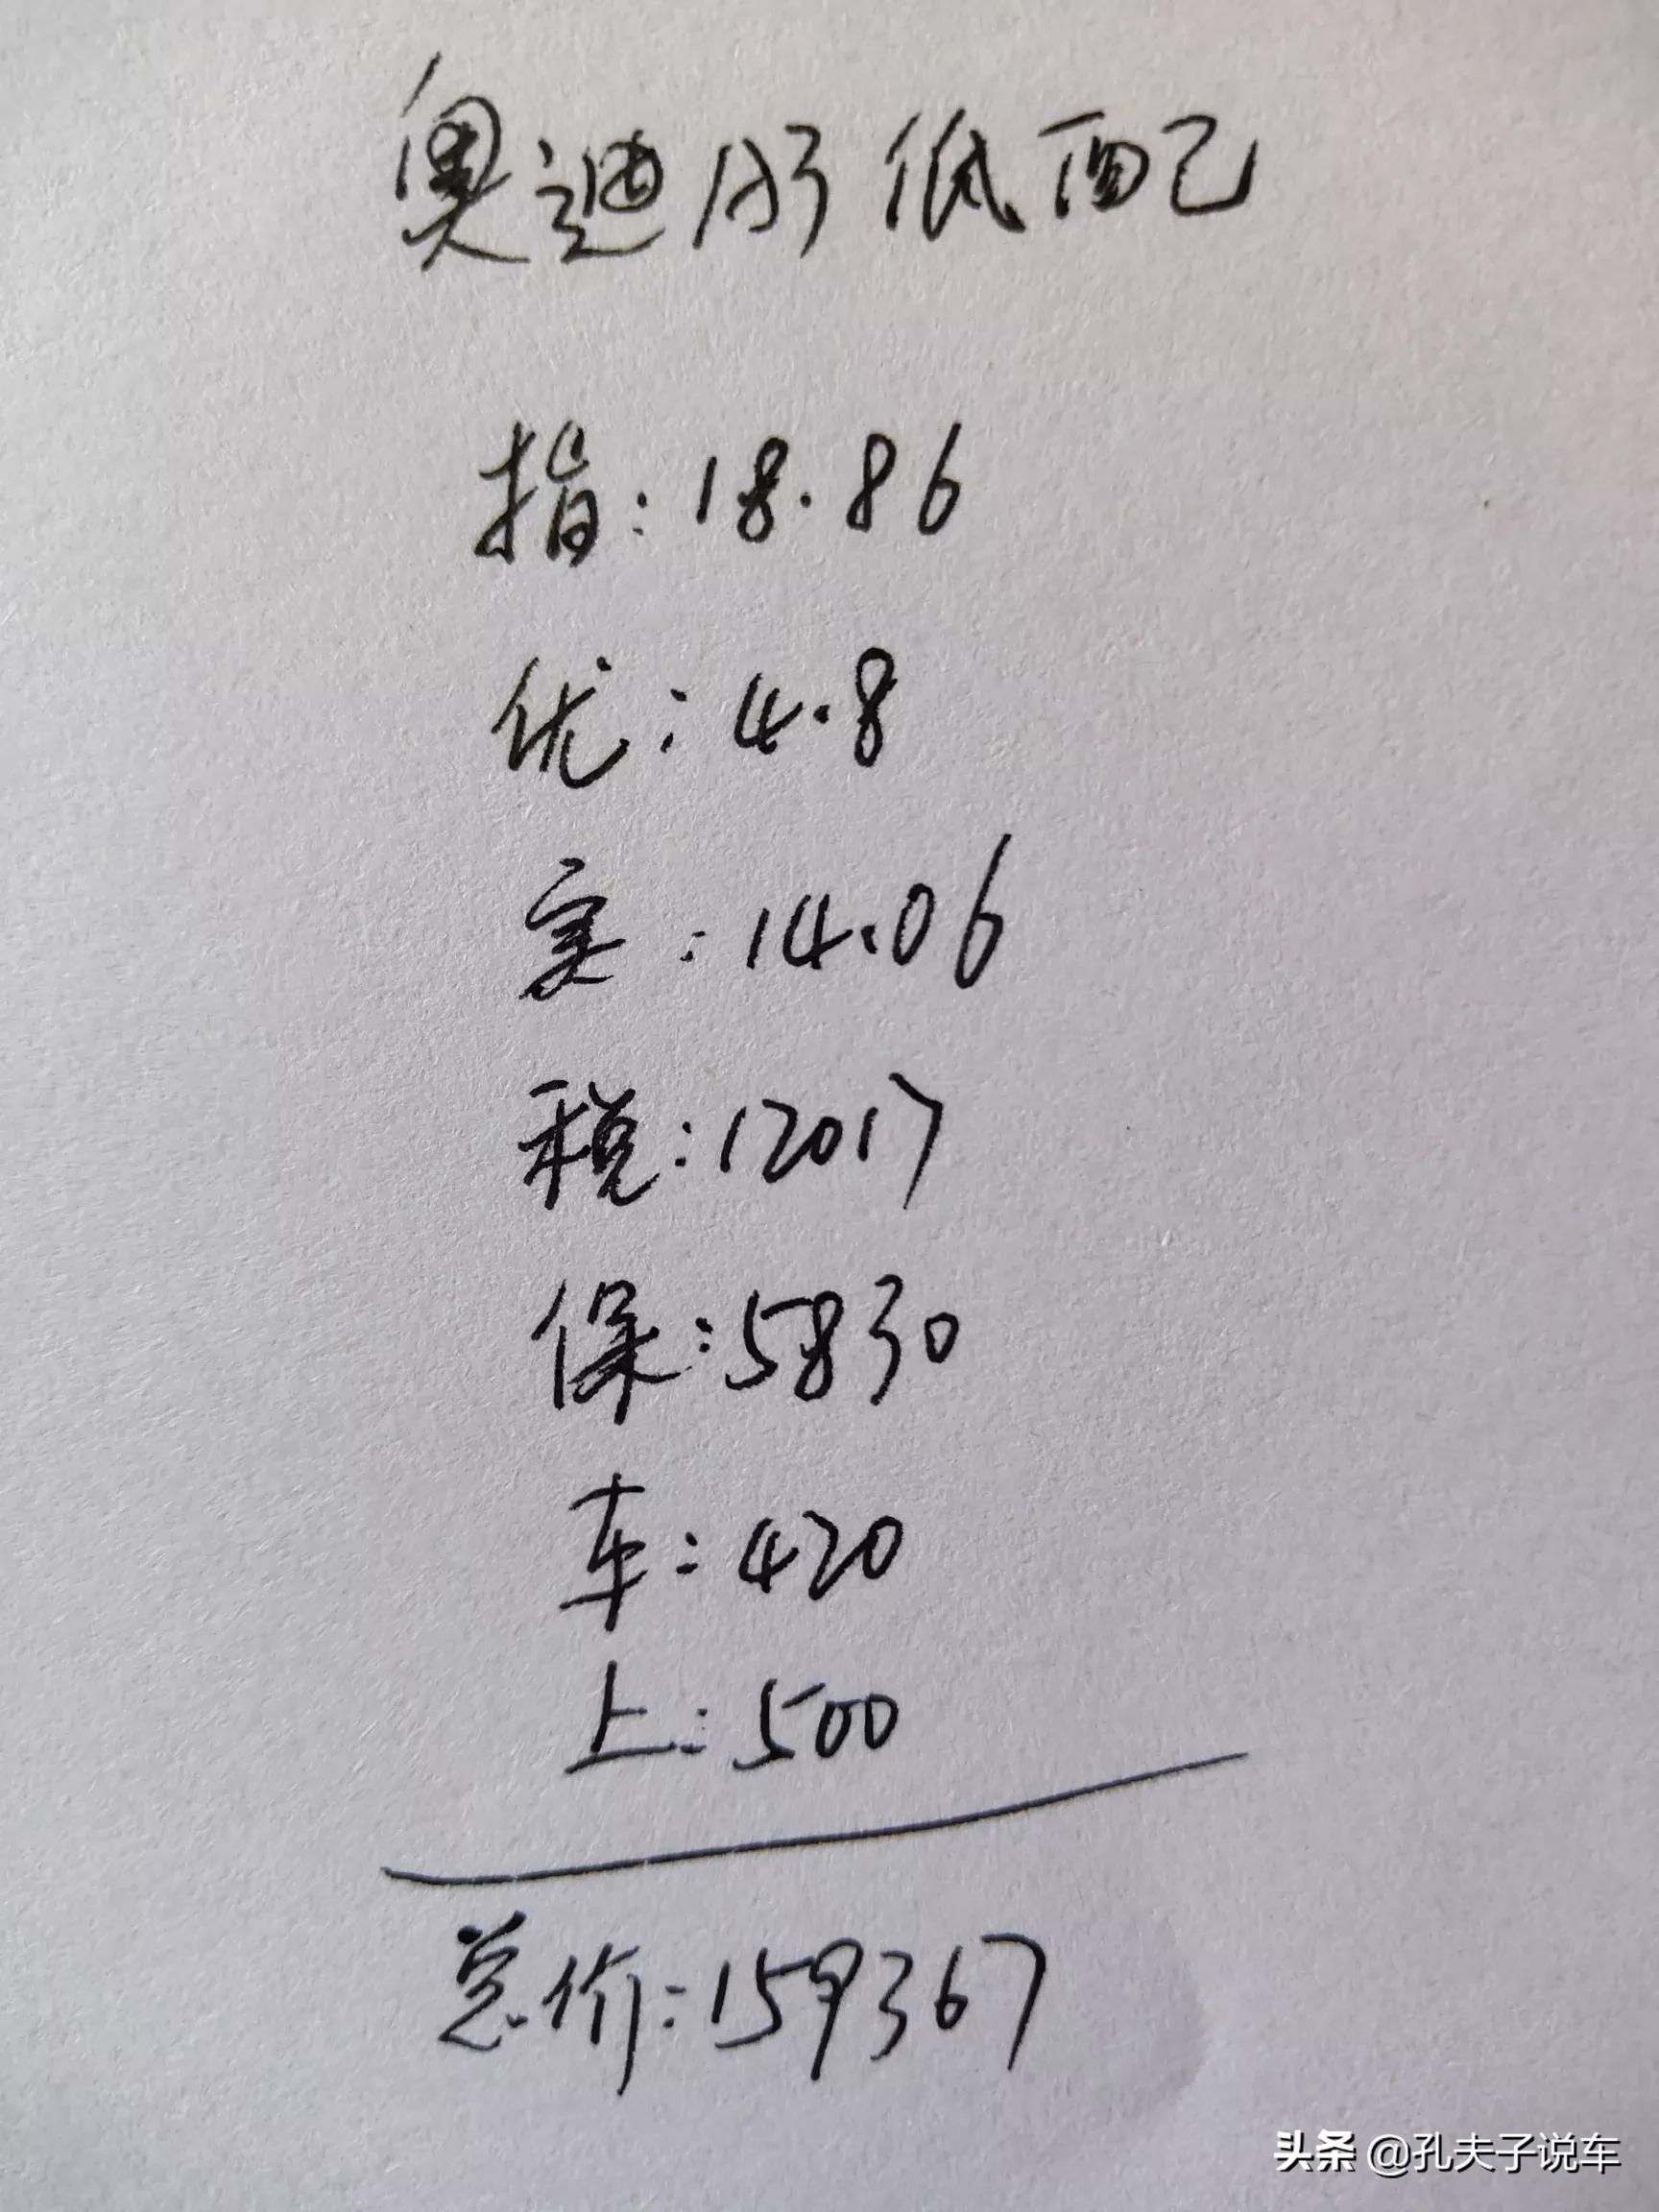 奥迪A3低配
指:18.86
优:4.8
实:14.06
税:12017
保:5830
车:420
上:500
总价:159367
头条 @孔夫子说车